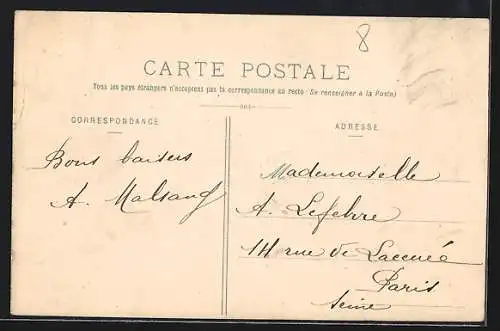 8
CARTE POSTALE
Tous les pays étrangers n'acceptent pas la correspondance au recto (Se renseigner à la Poste)
CORRESPONDANCE
Bons baisers
A. Malsang
ADRESSE
Mademoiselle
A. Lefebvre
14 rue de Lacuée
Paris
Seine